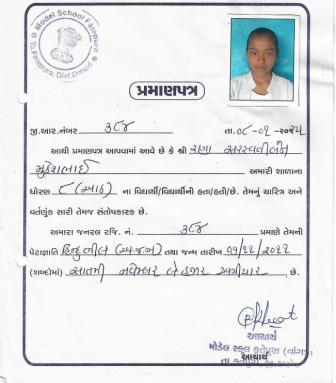 Model School Fatepura
To.Fatepura, Dist.Dahod
પ્રમાણપત્ર
જી.આર.નંબર ૩૮૪ તા. ૦૮-૦૧-૨૦૨૫
આથી પ્રમાણપત્ર આપવામાં આવે છે કે શ્રી રાણા સરસ્વતીબેન
મુકેશભાઈ અમારી શાળાના
ધોરણ ૮ (આઠ) ના વિદ્યાર્થી/વિદ્યાર્થીની હતા/હતી/છે. તેમનું ચારિત્ર અને
વર્તણુંક સારી તેમજ સંતોષકારક છે.
અમારા જનરલ રજિ. નં. ૩૮૪ પ્રમાણે તેમની
પેટાજ્ઞાતિ હિન્દુ ભીલ (અ.જ.જા) તથા જન્મ તારીખ
(શબ્દોમાં) સાતમી નવેમ્બર બે હજાર અગીયાર છે.
આચાર્ય
મોડેલ સ્કુલ ફતેપુરા
આચાર્ય